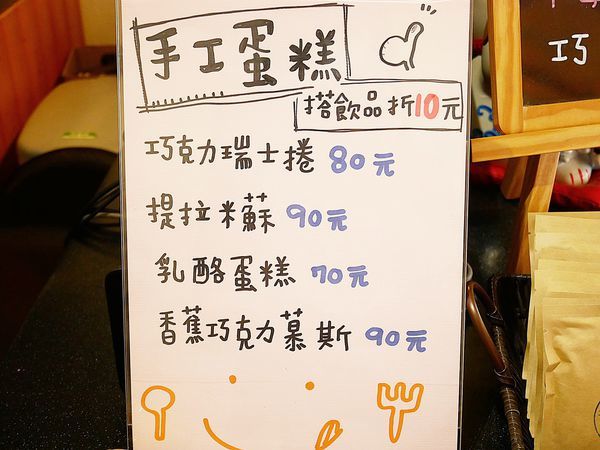 手工蛋糕
搭飲品折10元
巧克力瑞士捲 80元
提拉米蘇 90元
乳酪蛋糕 70元
香蕉巧克力慕斯 90元
巧